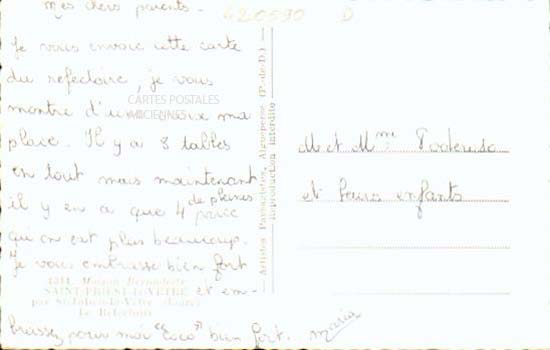 mes chers parents -
Je vous envoie cette carte
du refectoire, je vous
montre d'une croix ma
place. Il y a 8 tables
en tout mais maintenant
il y en a que 4 de pleines parce
qu'on est plus beaucoup.
Je vous embrasse bien fort
et em-
brassez pour moi "Coco" bien fort. Maria
620590 D
CARTES POSTALES
ANCIENNES
M et Mme
et leurs enfants
Artistes Parsanistes, Aigueperse (P.-de-D.)
Reproduction interdite
4344. Maison Bernadette
SAINT-PRIEST-la-VÊTRE
par St-Julien-la-Vêtre (Loire)
Le Réfectoire